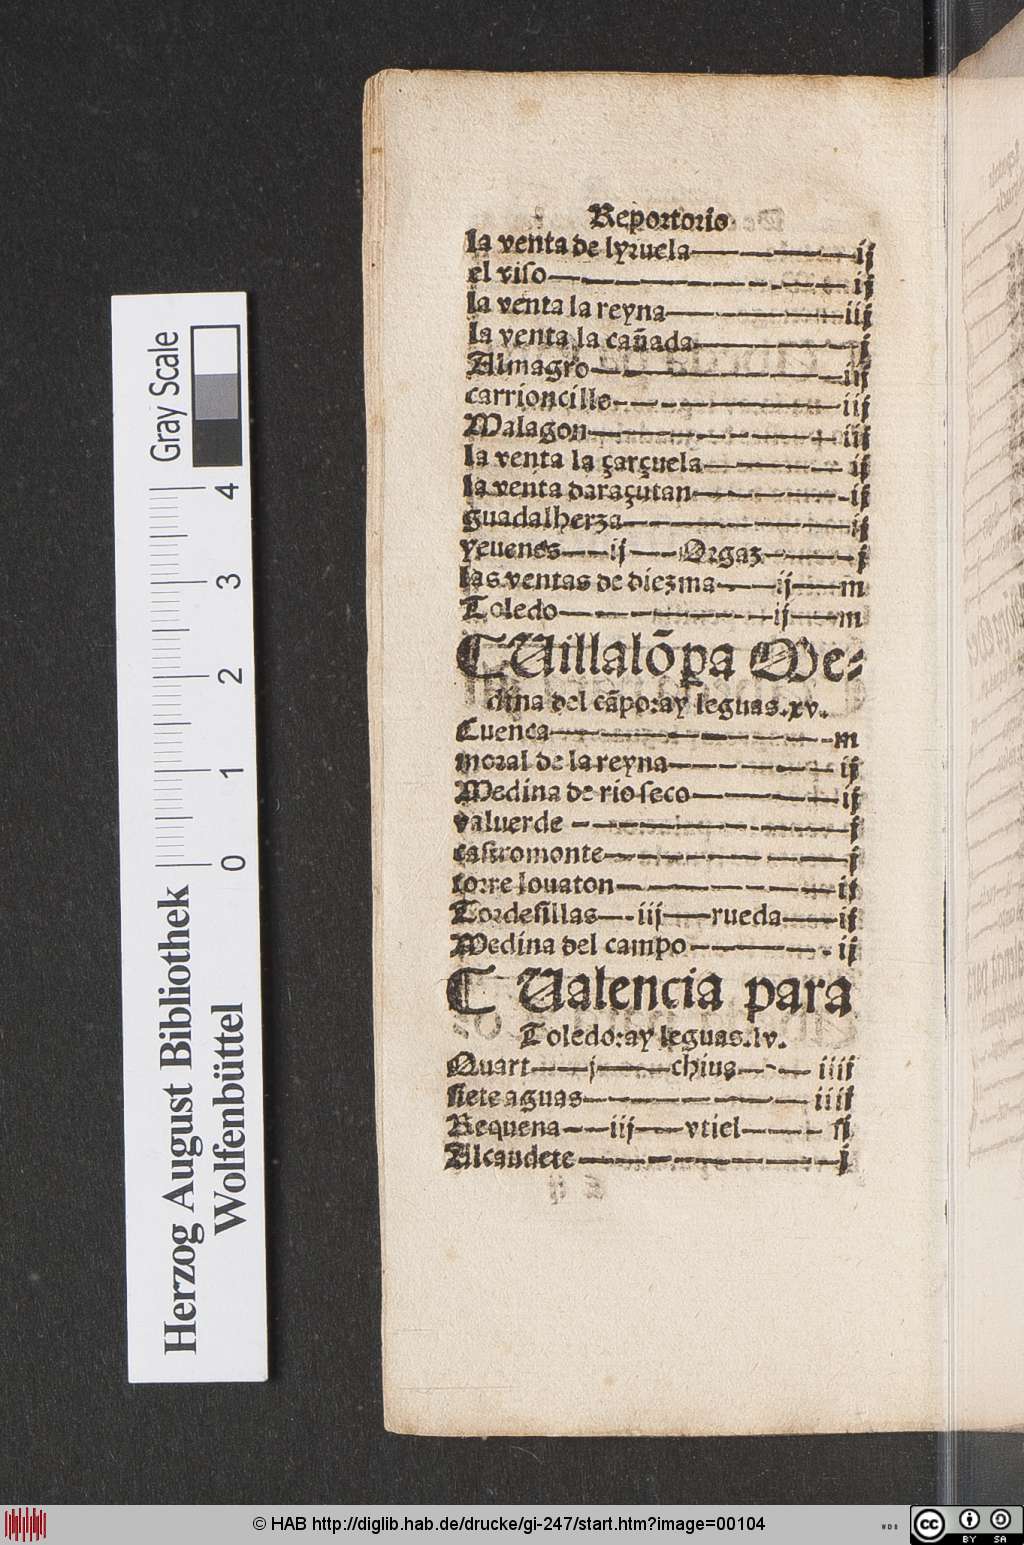 Reportorio
la venta de lyruela ij
el viso ij
la venta la reyna iij
la venta la cañada j
Almagro iij
carrioncillo iij
Malagon iij
la venta la çarçuela ij
la venta daraçutan ij
guadalherza ij
yeuenes ij Orgaz j
las ventas de diezma ij m
Toledo ij m
Uillalõ pa Me-
dina del cãpo: ay leguas.xv.
Cuenca m
moral de la reyna ij
Medina de rioseco ij
valuerde j
castromonte j
torre louaton ij
Tordesillas iij rueda ij
Medina del campo ij
Ualencia para
Toledo: ay leguas.lv.
Quart j chiua iiij
siete aguas iiij
Requena iij vtiel ij
Alcaudete j
Gray Scale
0 1 2 3 4
Herzog August Bibliothek
Wolfenbüttel
© HAB http://diglib.hab.de/drucke/gi-247/start.htm?image=00104
WDB
cc BY SA